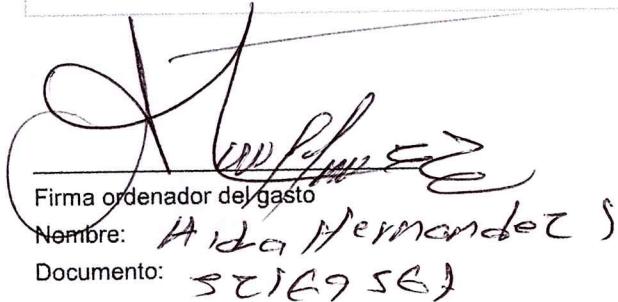 Firma ordenador del gasto
Nombre: Aida Hernandez S
Documento: